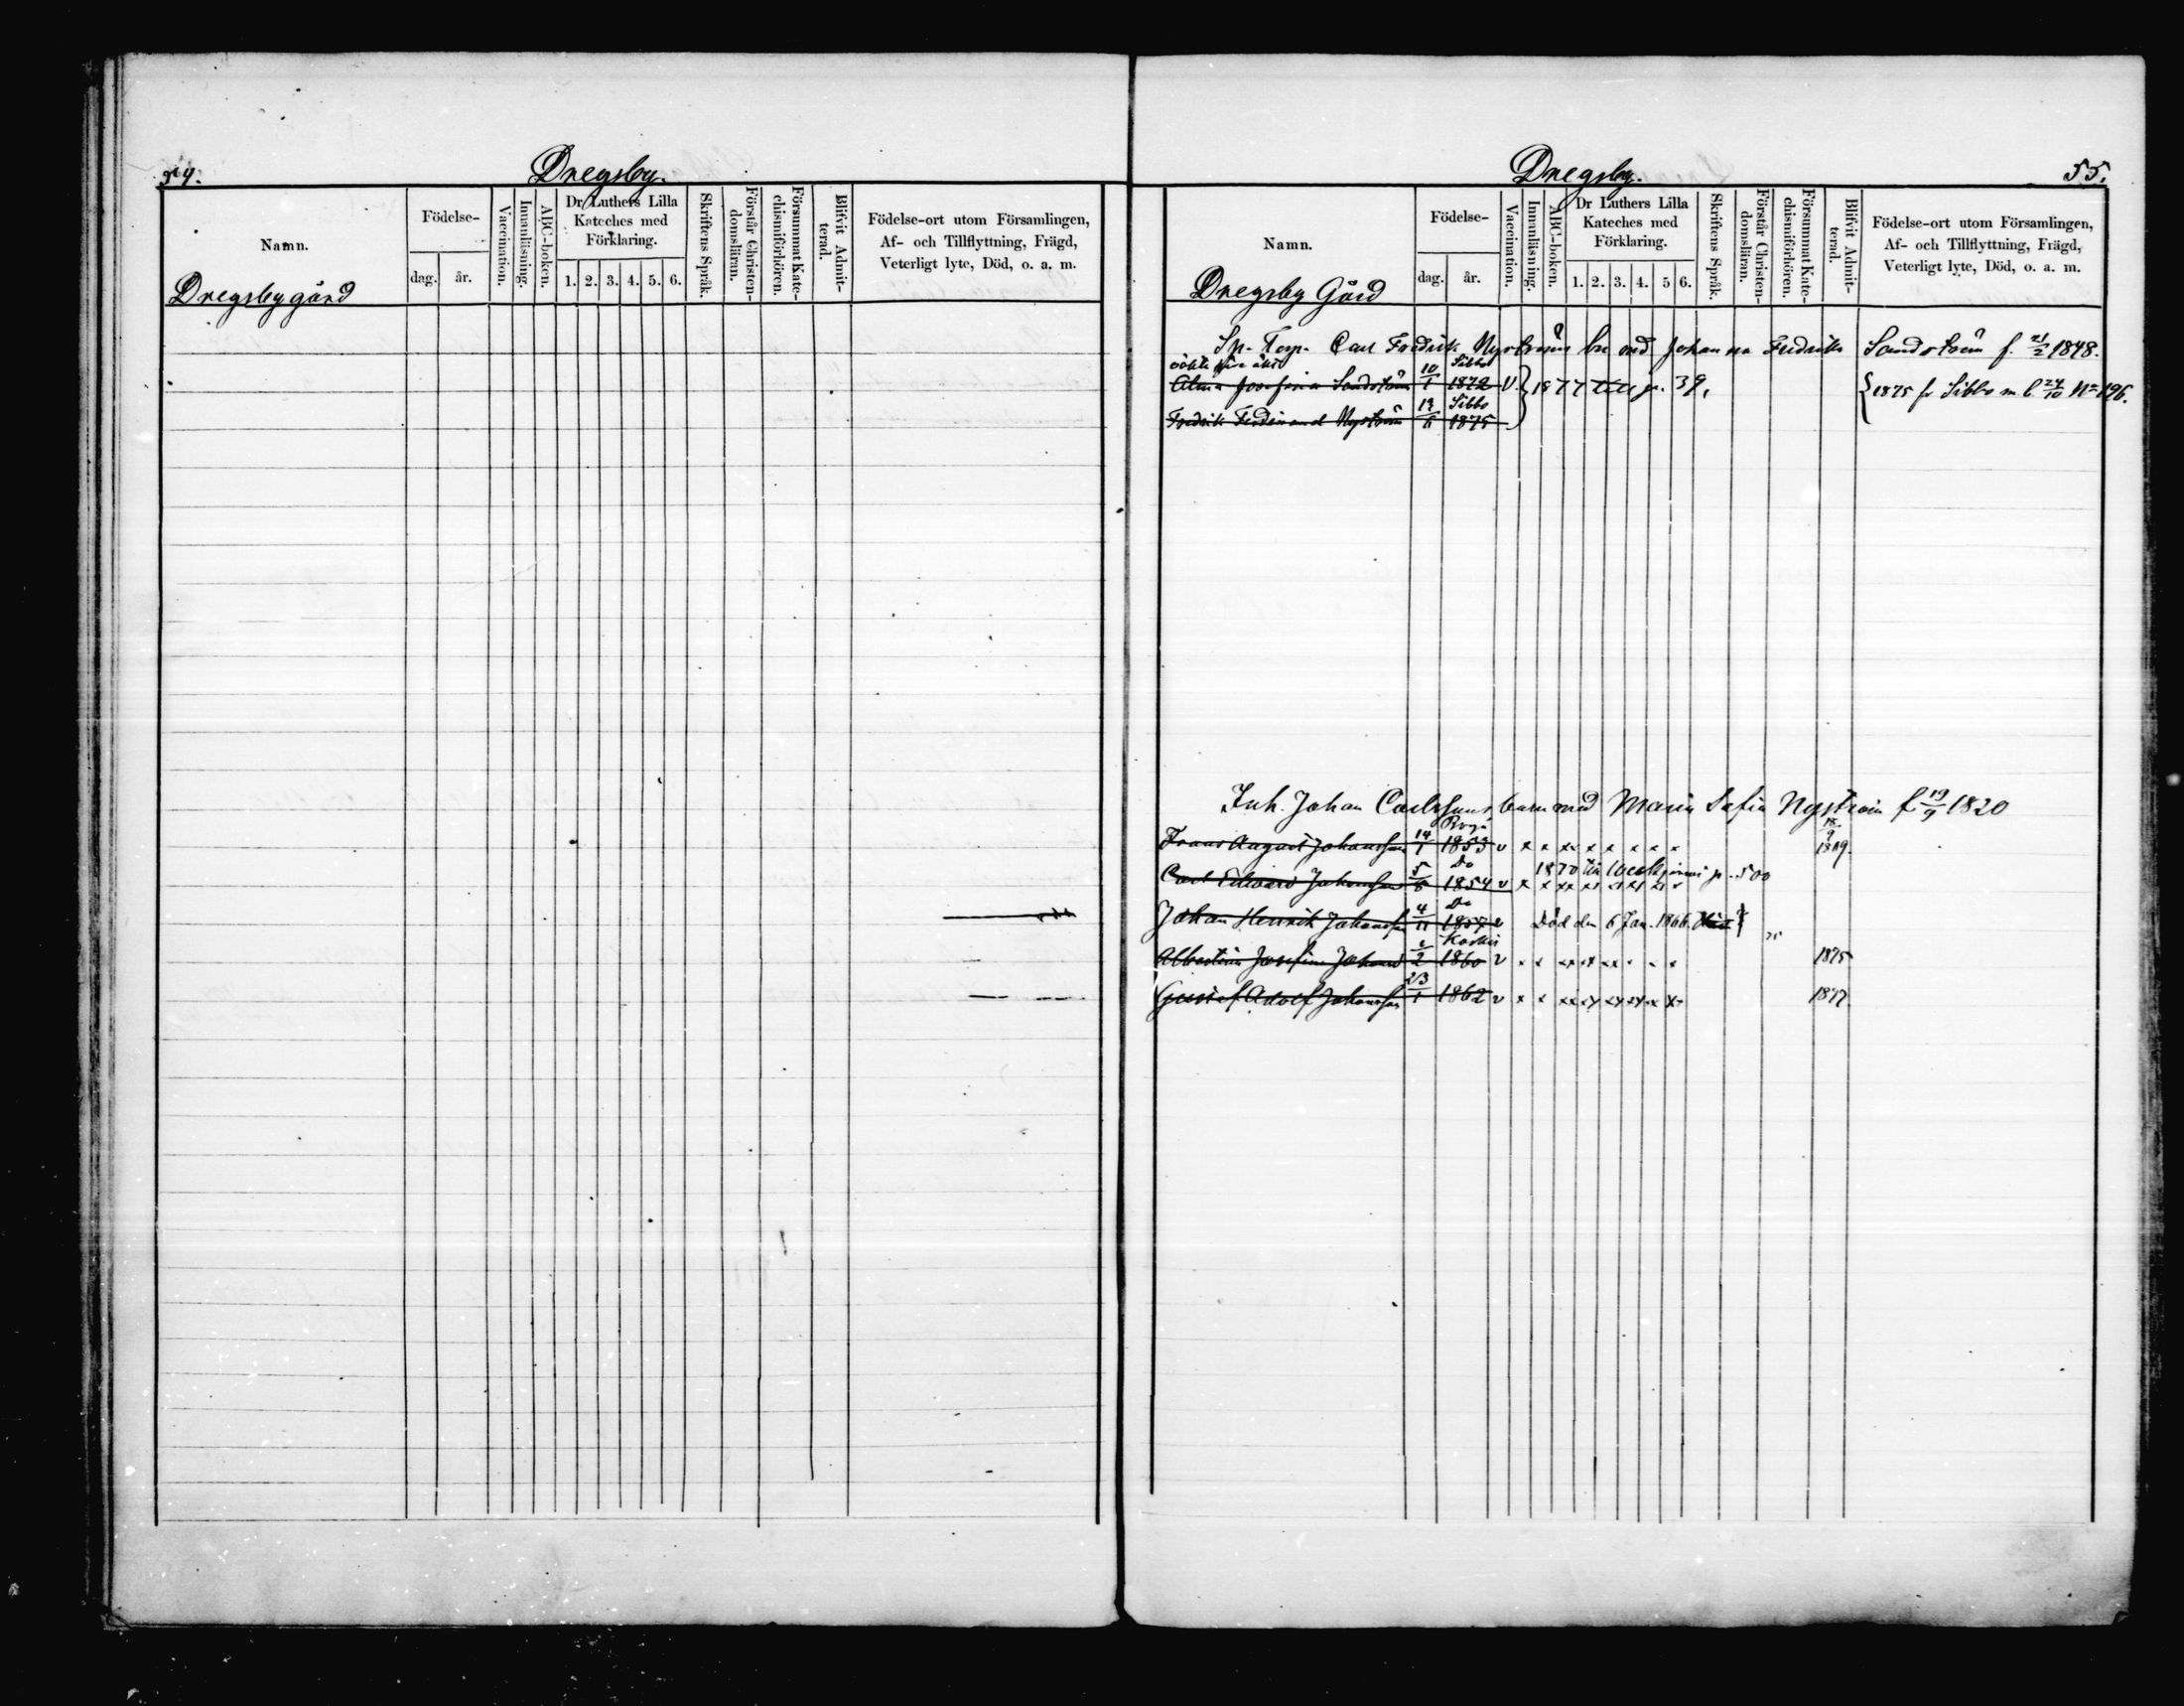 54. Dregsby.
Namn. Födelse- dag. år. Vaccination. Innanläsning. ABC-boken. Dr Luthers Lilla Kateches med Förklaring. 1. 2. 3. 4. 5. 6. Skriftens Språk. Förstår Christen-domsläran. Försummat Kate-chismiförhören. Blifvit Admit-terad. Födelse-ort utom Församlingen, Af- och Tillflyttning, Frägd, Veterligt lyte, Död, o. a. m.
Dregsby gård
Dregsby. 55.
Namn. Födelse- dag. år. Vaccination. Innanläsning. ABC-boken. Dr Luthers Lilla Kateches med Förklaring. 1. 2. 3. 4. 5 6. Skriftens Språk. Förstår Christen-domsläran. Försummat Kate-chismiförhören. Blifvit Admit-terad. Födelse-ort utom Församlingen, Af- och Tillflyttning, Frägd, Veterligt lyte, Död, o. a. m.
Dregsby Gård
Sp. Torp. Carl Fredrik Nyströms bn med Johanna Fredrika Sandström f. 21/2 1848.
Sibbo
Alma Josefina Sandström 10/1 1872 v. 1877 till p. 39, 1875 fr Sibbo m. b. 24/10 No 196.
Sibbo
Fredrik Ferdinand Nyström 1875
Inh. Johan Carlssons barn med Maria Sofia Nyström f. 19/9 1820
Frans August Johansson 14/1 1853 v x x xx x x x x x 18/9 1869.
Do 1870 till p. 500
Carl Edvard Johansson 5/8 1854 v x x xx xx xx xx x x
Do
Johan Henrik Johansson 4/11 1857 v Död den 6 Jan. 1866.
Koskis
Albertina Josefina Johans 1860 v x x xx xx xx x x x 1875
Gustaf Adolf Johansson 23/1 1862 v x x xx xx xx xx x x 1877.